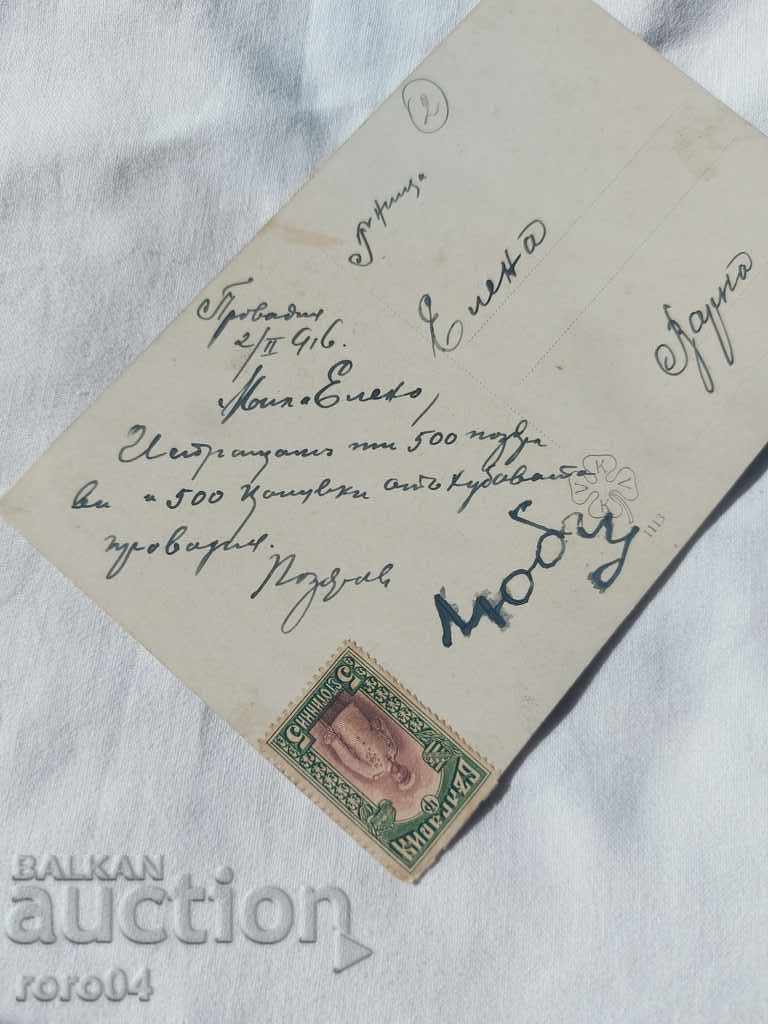 2
Г-жица
Елена
Варна
Провадия
2/II 916.
Мила Елено,
Изпращамъ ти 500 поздра
ви и 500 целувки отъ хубавата
провадия.
Поздрав
Любу
1113
БЪЛГАРИЯ
5 СТОТИНКИ 5
BALKAN
auction
roro04